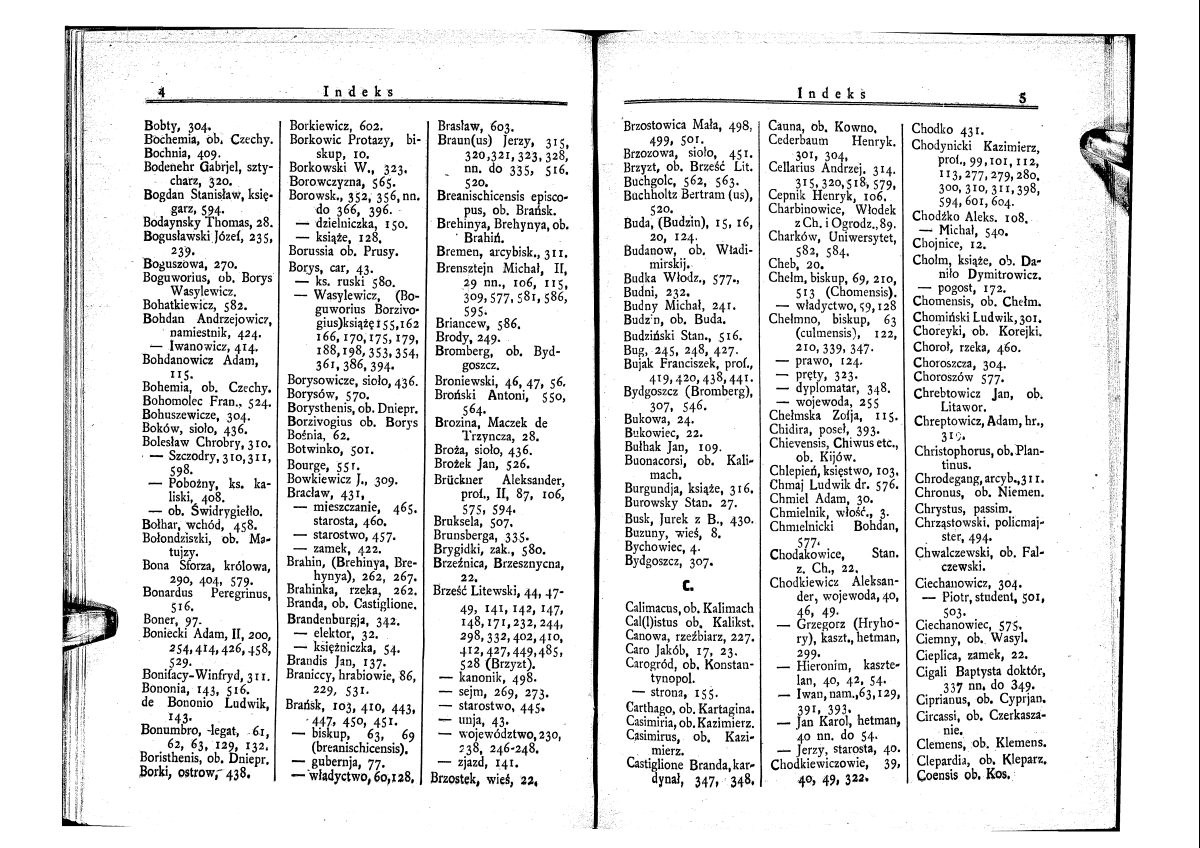 4
Indeks
Bobty, 304.
Bochemia, ob. Czechy.
Bochnia, 409.
Bodenehr Gabrjel, szty-
charz, 320.
Bogdan Stanisław, księ-
garz, 594.
Bodaynsky Thomas, 28.
Bogusławski Józef, 235,
239.
Boguszowa, 270.
Boguworius, ob. Borys
Wasylewicz.
Bohatkiewicz, 582.
Bohdan Andrzejowicz,
namiestnik, 424.
— Iwanowicz, 414.
Bohdanowicz Adam,
115.
Bohemia, ob. Czechy.
Bohomolec Fran., 524.
Bohuszewicze, 304.
Boków, sioło, 436.
Bolesław Chrobry, 310.
— Szczodry, 310, 311,
598.
— Pobożny, ks. ka-
liski, 408.
— ob. Świdrygiełło.
Bołhar, wchód, 458.
Bołondziszki, ob. Ma-
tujzy.
Bona Sforza, królowa,
290, 404, 579.
Bonardus Peregrinus,
516.
Boner, 97.
Boniecki Adam, II, 200,
254, 414, 426, 458,
529.
Bonifacy-Winfryd, 311.
Bononia, 143, 516.
de Bononio Ludwik,
143.
Bonumbro, legat, 61,
62, 63, 129, 132.
Boristhenis, ob. Dniepr.
Borki, ostrow, 438.
Borkiewicz, 602.
Borkowic Protazy, bi-
skup, 10.
Borkowski W., 323.
Borowczyzna, 565.
Borowsk., 352, 356, nn.
do 366, 396.
— dzielniczka, 150.
— książe, 128.
Borussia ob. Prusy.
Borys, car, 43.
— ks. ruski 580.
— Wasylewicz, (Bo-
guworius Borzivo-
gius) książę 155, 162
166, 170, 175, 179,
188, 198, 353, 354,
361, 386, 394.
Borysowicze, sioło, 436.
Borysów, 570.
Borysthenis, ob. Dniepr.
Borzivogius ob. Borys
Bośnia, 62.
Botwinko, 501.
Bourge, 551.
Bowkiewicz J., 309.
Bracław, 431.
— mieszczanie, 465.
starosta, 460.
— starostwo, 457.
— zamek, 422.
Brahin, (Brehinya, Bre-
hynya), 262, 267.
Brahinka, rzeka, 262.
Branda, ob. Castiglione.
Brandenburgja, 342.
— elektor, 32.
— księżniczka, 54.
Brandis Jan, 137.
Braniccy, hrabiowie, 86,
229, 531.
Brańsk, 103, 410, 443,
447, 450, 451.
— biskup, 63, 69
(breanischicensis).
— gubernja, 77.
— władyctwo, 60, 128.
Brasław, 603.
Braun(us) Jerzy, 315,
320, 321, 323, 328,
nn. do 335, 516.
520.
Breanischicensis episco-
pus, ob. Brańsk.
Brehinya, Brehynya, ob.
Brahiń.
Bremen, arcybisk., 311.
Brensztejn Michał, II,
29 nn., 106, 115,
309, 577, 581, 586,
595.
Briancew, 586.
Brody, 249.
Bromberg, ob. Byd-
goszcz.
Broniewski, 46, 47, 56.
Broński Antoni, 550,
564.
Brozina, Maczek de
Trzyncza, 28.
Broża, sioło, 436.
Brożek Jan, 526.
Brückner Aleksander,
prof., II, 87, 106,
575, 594.
Bruksela, 507.
Brunsberga, 335.
Brygidki, zak., 580.
Brzeźnica, Brzesznycna,
22.
Brześć Litewski, 44, 47-
49, 141, 142, 147,
148, 171, 232, 244,
298, 332, 402, 410,
412, 427, 449, 485,
528 (Brzyzt).
— kanonik, 498.
— sejm, 269, 273.
— starostwo, 445.
— unja, 43.
— województwo, 230,
238, 246-248.
— zjazd, 141.
Brzostek, wieś, 22.
Indeks
5
Brzostowica Mała, 498,
499, 501.
Brzozowa, sioło, 451.
Brzyzt, ob. Brześć Lit.
Buchgolc, 562, 563.
Buchholtz Bertram (us),
520.
Buda, (Budzin), 15, 16,
20, 124.
Budanow, ob. Władi-
mirskij.
Budka Włodz., 577.,
Budni, 232.
Budny Michał, 241.
Budzin, ob. Buda.
Budziński Stan., 516.
Bug, 245, 248, 427.
Bujak Franciszek, prof.,
419, 420, 438, 441.
Bydgoszcz (Bromberg),
307, 546.
Bukowa, 24.
Bukowiec, 22.
Bułhak Jan, 109.
Buonacorsi, ob. Kali-
mach.
Burgundja, książe, 316.
Burowsky Stan. 27.
Busk, Jurek z B., 430.
Buzuny, wieś, 8.
Bychowiec, 4.
Bydgoszcz, 307.
C.
Calimacus, ob. Kalimach
Cal(l)istus ob. Kalikst.
Canowa, rzeźbiarz, 227.
Caro Jakób, 17, 23.
Carogród, ob. Konstan-
tynopol.
— strona, 155.
Carthago, ob. Kartagina.
Casimiria, ob. Kazimierz.
Casimirus, ob. Kazi-
mierz.
Castiglione Branda, kar-
dynał, 347, 348.
Cauna, ob. Kowno.
Cederbaum Henryk.
301, 304.
Cellarius Andrzej. 314.
315, 320, 518, 579,
Cepnik Henryk, 106.
Charbinowice, Włodek
z Ch. i Ogrodz., 89.
Charków, Uniwersytet,
582, 584.
Cheb, 20.
Chełm, biskup, 69, 210,
513 (Chomensis).
— władyctwo, 59, 128
Chełmno, biskup, 63
(culmensis), 122,
210, 339, 347.
— prawo, 124.
— pręty, 323.
— dyplomatar, 348.
— wojewoda, 255
Chełmska Zofja, 115.
Chidira, poseł, 393.
Chievensis, Chiwus etc.,
ob. Kijów.
Chlepień, księstwo, 103.
Chmaj Ludwik dr. 576.
Chmiel Adam, 30.
Chmielnik, włość., 3.
Chmielnicki Bohdan,
577.
Chodakowice, Stan.
z. Ch., 22.
Chodkiewicz Aleksan-
der, wojewoda, 40,
46, 49.
— Grzegorz (Hryho-
ry), kaszt., hetman,
299.
— Hieronim, kaszte-
lan, 40, 42, 54.
— Iwan, nam., 63, 129,
391, 393.
— Jan Karol, hetman,
40 nn. do 54.
— Jerzy, starosta, 40.
Chodkiewiczowie, 39,
40, 49, 322.
Chodko 431.
Chodynicki Kazimierz,
prof., 99, 101, 112,
113, 277, 279, 280.
300, 310, 311, 398,
594, 601, 604.
Chodźko Aleks. 108.
— Michał, 540.
Chojnice, 12.
Chołm, książe, ob. Da-
niło Dymitrowicz.
— pogost, 172.
Chomensis, ob. Chełm.
Chomiński Ludwik, 301.
Choreyki, ob. Korejki.
Choroł, rzeka, 460.
Choroszcza, 304.
Choroszów 577.
Chrebtowicz Jan, ob.
Litawor.
Chreptowicz, Adam, hr.,
Christophorus, ob. Plan-
tinus.
Chrodegang, arcyb., 311.
Chronus, ob. Niemen.
Chrystus, passim.
Chrząstowski. policmaj-
ster, 494.
Chwalczewski, ob. Fal-
czewski.
Ciechanowicz, 304.
— Piotr, student, 501,
503.
Ciechanowiec, 575.
Ciemny, ob. Wasyl.
Cieplica, zamek, 22.
Cigali Baptysta doktór,
337 nn. do 349.
Ciprianus, ob. Cyprjan.
Circassi, ob. Czerkasza-
nie.
Clemens, ob. Klemens.
Clepardia, ob. Kleparz.
Coensis ob. Kos.